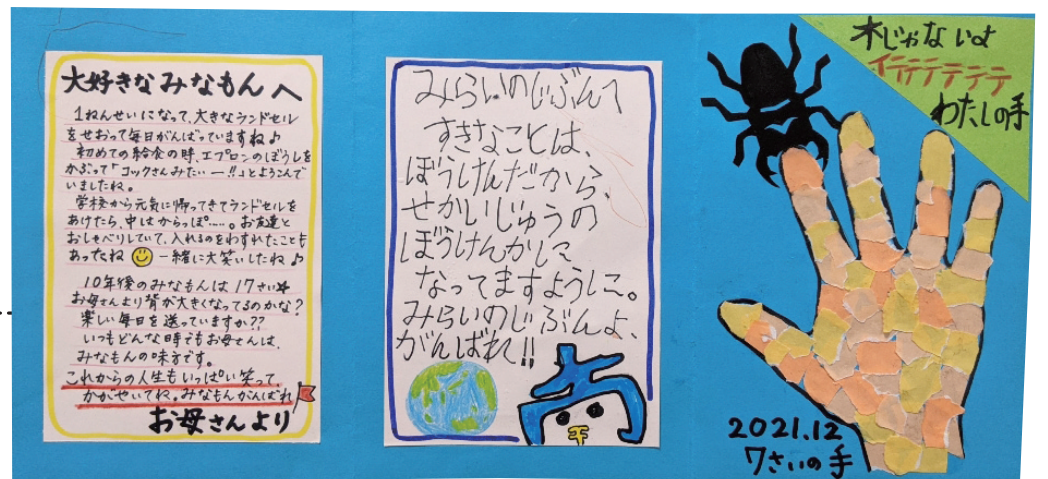 大好きなみなもんへ
1ねんせいになって、大きなランドセル
をせおって毎日がんばっていますね♪
初めての給食の時、エプロンのぼうしを
かぶって「コックさんみたいー!!」とよろこんで
いましたね。
学校から元気に帰ってきてランドセルを
あけたら、中はからっぽ……。お友達と
おしゃべりしていて、入れるのをわすれたことも
あったね 一緒に大笑いしたね♪
10年後のみなもんは17さい☆
お母さんより背が大きくなってるのかな?
楽しい毎日を送っていますか??
いつもどんな時でもお母さんは、
みなもんの味方です。
これからの人生もいっぱい笑って、
かがやいてね。みなもんがんばれ
お母さんより
みらいのじぶんへ
すきなことは、
ぼうけんだから、
せかいじゅうの
ぼうけんかに
なってますように。
みらいのじぶんよ、
がんばれ!!
木じゃないよ
イテテテテテテ
わたしの手
2021.12
7さいの手